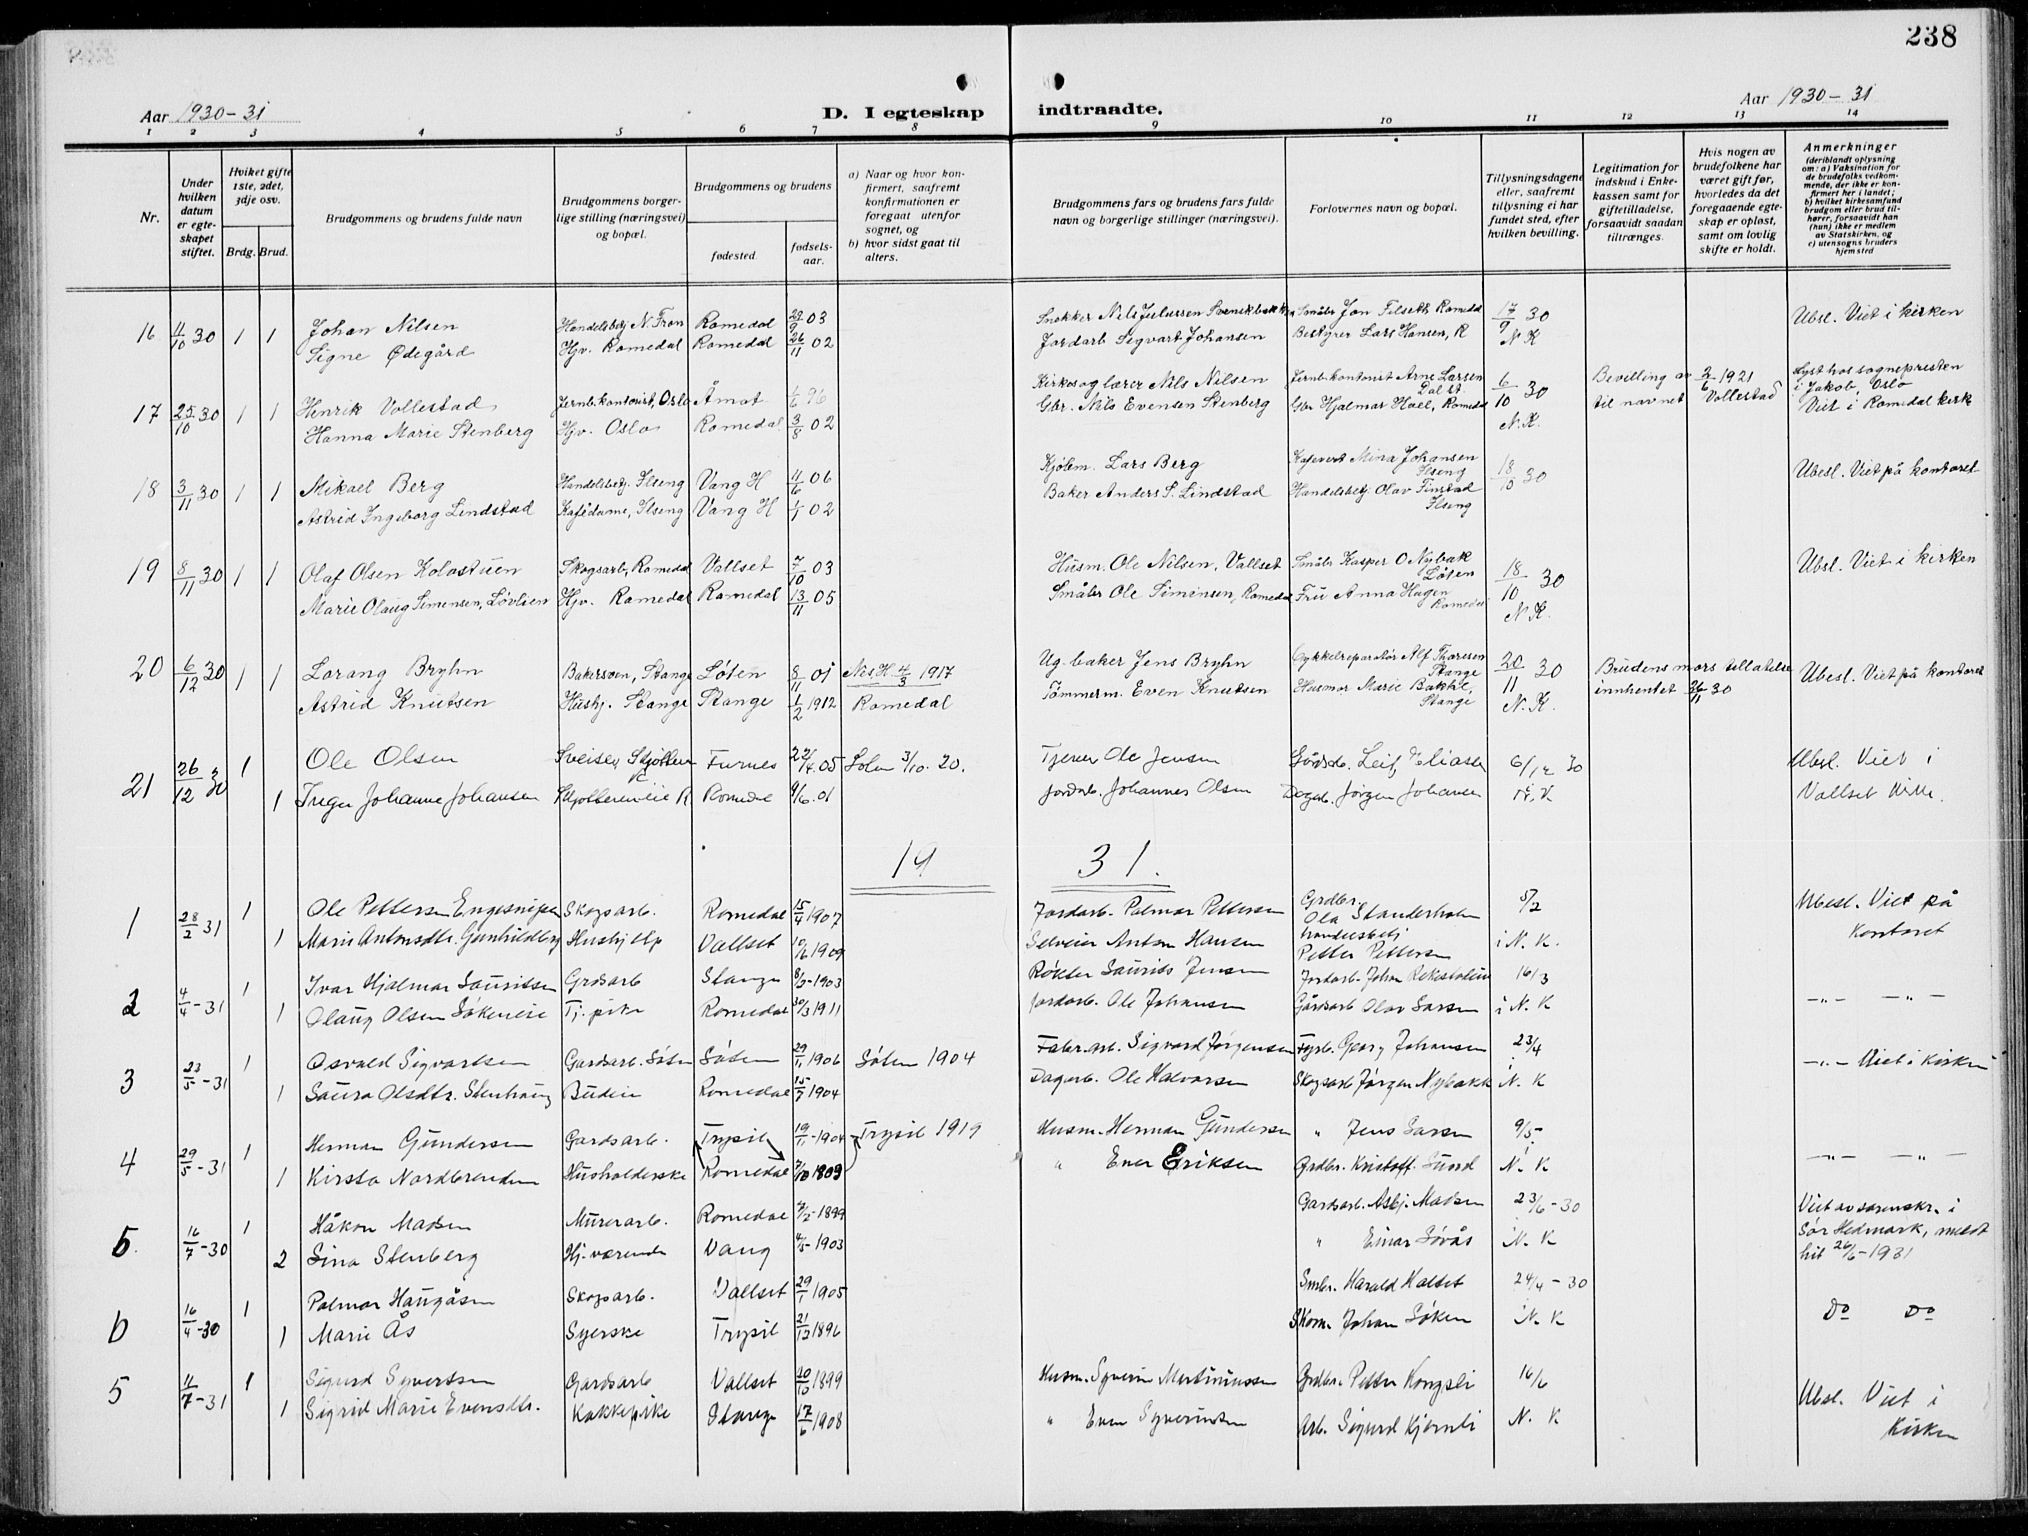 238
Aar 1930-31
D. I egteskap
indtraadte.
Aar 1930-31
1 2 3 4 5 6 7 8 9 10 11 12 13 14
Nr.
Under hvilken datum er egteskapet stiftet.
Hviket gifte 1ste, 2det, 3dje osv.
Brdg. Brud.
Brudgommens og brudens fulde navn
Brudgommens borgerlige stilling (næringsvei) og bopæl.
Brudgommens og brudens
fødested.
fødselsaar.
a) Naar og hvor konfirmert, saafremt konfirmationen er foregaat utenfor sognet, og
b) hvor sidst gaat til alters.
Brudgommens fars og brudens fars fulde navn og borgerlige stillinger (næringsvei).
Forlovernes navn og bopæl.
Tillysningsdagene eller, saafremt tillysning ei har fundet sted, efter hvilken bevilling.
Legitimation for indskud i Enkekassen samt for giftetilladelse, forsaavidt saadan tiltrænges.
Hvis nogen av brudefolkene har været gift før, hvorledes da det foregaaende egteskap er opløst, samt om lovlig skifte er holdt.
Anmerkninger
(deriblandt oplysning om: a) Vaksination for de brudefolks vedkommende, der ikke er konfirmert her i landet; b) hvilket kirkesamfund brudgom eller brud tilhører, forsaavidt han (hun) ikke er medlem av Statskirken, og c) utensogns bruders hjemsted
16 11/10 30 1 1 Johan Nilsen Handelsbetj N. Fron Romedal 29/9 03 Snekker Nils Julussen Svenskbakken Småbr Jon Filseth Romedal 17/9 30 Ubsl. Viet i kirken
Signe Ødegård Hjv. Romedal Romedal 26/11 02 Jordarb Segvart Johansen Bestyrer Lars Hansen, R N K
17 25/10 30 1 1 Henrik Vollestad Jernb.kontorist, Oslo Åmot 1/6 96 Kirkesog lærer Nils Nilsen Jernb.kontorist Arne Larsen Dal st. 6/10 30 Bevilling av 2/6 1921 til navnet Vollestad Lyst hos sognepresten i Jakob, Oslo
Hanna Marie Stenberg Hjv. Oslo Romedal 3/8 02 Gbr. Nils Evensen Stenberg Gbr Hjalmar Hoel, Romedal N.K. Viet i Romedal kirke
18 3/11 30 1 1 Mikael Berg Handelsbetj. Ilseng Vang H 11/6 06 Kjøbm. Lars Berg Kafevert Mina Johansen Ilseng 18/10 30 Ubesl. Viet på kontoret
Astrid Ingeborg Lindstad Kafédame, Ilseng Vang H 1/1 02 Baker Anders S. Lindstad Handelsbetj. Olav Finstad Ilseng
19 8/11 30 1 1 Olaf Olsen Kolostuen Skogsarb, Romedal Vallset 7/10 03 Husm. Ole Nilsen, Vallset Småbr Kasper O Nybak Løten 18/10 30 Ubsl. Viet i kirken
Marie Olaug Simensen, Løvlien Hjv. Romedal Romedal 13/11 05 Småbr Ole Simensen, Romedal Fru Anna Hagen Romedal N.K.
20 6/12 30 1 1 Lorang Bryhn Bakersven, Stange Løten 8/11 01 Nes, H 4/3 1917 Ug. baker Jens Bryhn Cykkelreparatør Alf Thoresen Stange 20/11 30 Brudens mors tillatelse innhentet 26/11 30 Ubesl. Viet på kontoret
Astrid Knutsen Hushj. Stange Stange 1/2 1912 Romedal Tømmerm. Even Knutsen Husmor Marie Bakke, Stange N.K.
21 26/12 30 1 Ole Olsen Furnes 22/4 05 3/10. 20. Tjener Ole Jensen Leif Eliasen 6/12 30 Ubsl. Viet i
1 Inger Johanne Johansen Romedal 9/6.01 Jordarb. Johannes Olsen Dagarb. Jørgen Johansen N. K Vallset Kirke.
19 31.
1 28/2 31 1 Ole Pettersen Engesnipen Skogsarb. Romedal 15/4 1907 Jordarb. Palmar Pettersen Grdbr. Ola Standerholen 5/2 Ubesl. Viet på
1 Marie Antonsdtr. Gunhildberg Hushjelp Vallset 10/6 1909 Selveier Anton Hansen Handelsbetj Petter Pettersen i N. K. Kontoret
2 4/4-31 1 Ivar Hjalmar Lauritsen Grdsarb Stange 8/2-1903 Røkter Laurits Jensen Jordarb. Johan 16/3
1 Olaug Olsen Løkeneie Tj. pike Romedal 30/3 1911 Jordarb. Ole Johansen Gårdsarb Olav Larsen i N. K -"- -"-
3 23/5-31 1 Osvald Sigvartsen Gardsarb. Løten Løten 29/1 1906 Løten 1904 Fabr.arb. Sigvard Jørgensen Fyrb. Georg Johansen 23/4 -"- Viet i Kirken
1 Laura Olsdtr. Stenhaug Budeie Romedal 15/7 1904 Dagarb. Ole Halvorsen Skogsarb Jørgen Nybakk i N. K
4 29/5-31 1 Herman Gundersen Gardsarb. Trysil 19/1-1904 Trysil 1919 Husm. Herman Gundersen " Jens Larsen 9/5
1 Kirsta Nordbrenden Husholderske Romedal 7/10 1909 " Ener Eriksen Grdbr. Kristoff. N. K -"- -"-
5. 16/7-30 1 Håkon Madsen Murerarb. Romedal 1899 Gardsarb. Asbj. Madsen 23/6-30 Viet av sorenskr. i
2 Lina Stenberg Hj. værende Vang 4/5-1903 " Einar Løvås i N. K Sør Hedmark, meldt hit 26/6-1931
6 16/4-30 1 Palmar Haugåsen Skogsarb. Vallset 29/1 1905 Smbr. Harald Halset 24/4-30
1 Marie Ås Syerske Trysil 21/12 1896 Skom. Johan Løken i N. K Do Do
5 11/7-31 1 Sigurd Syvertsen Gardsarb Vallset 20/10 1899 Husm. Syverin Martiniussen Grdbr. Petter Kongsli 16/6 Ubsl. Viet i
1 Sigrid Marie Evensdtr. Kokkepike Stange 17/6 1908 " Even Syverinsen Arb. Sigurd Kjernli N. K Kirken